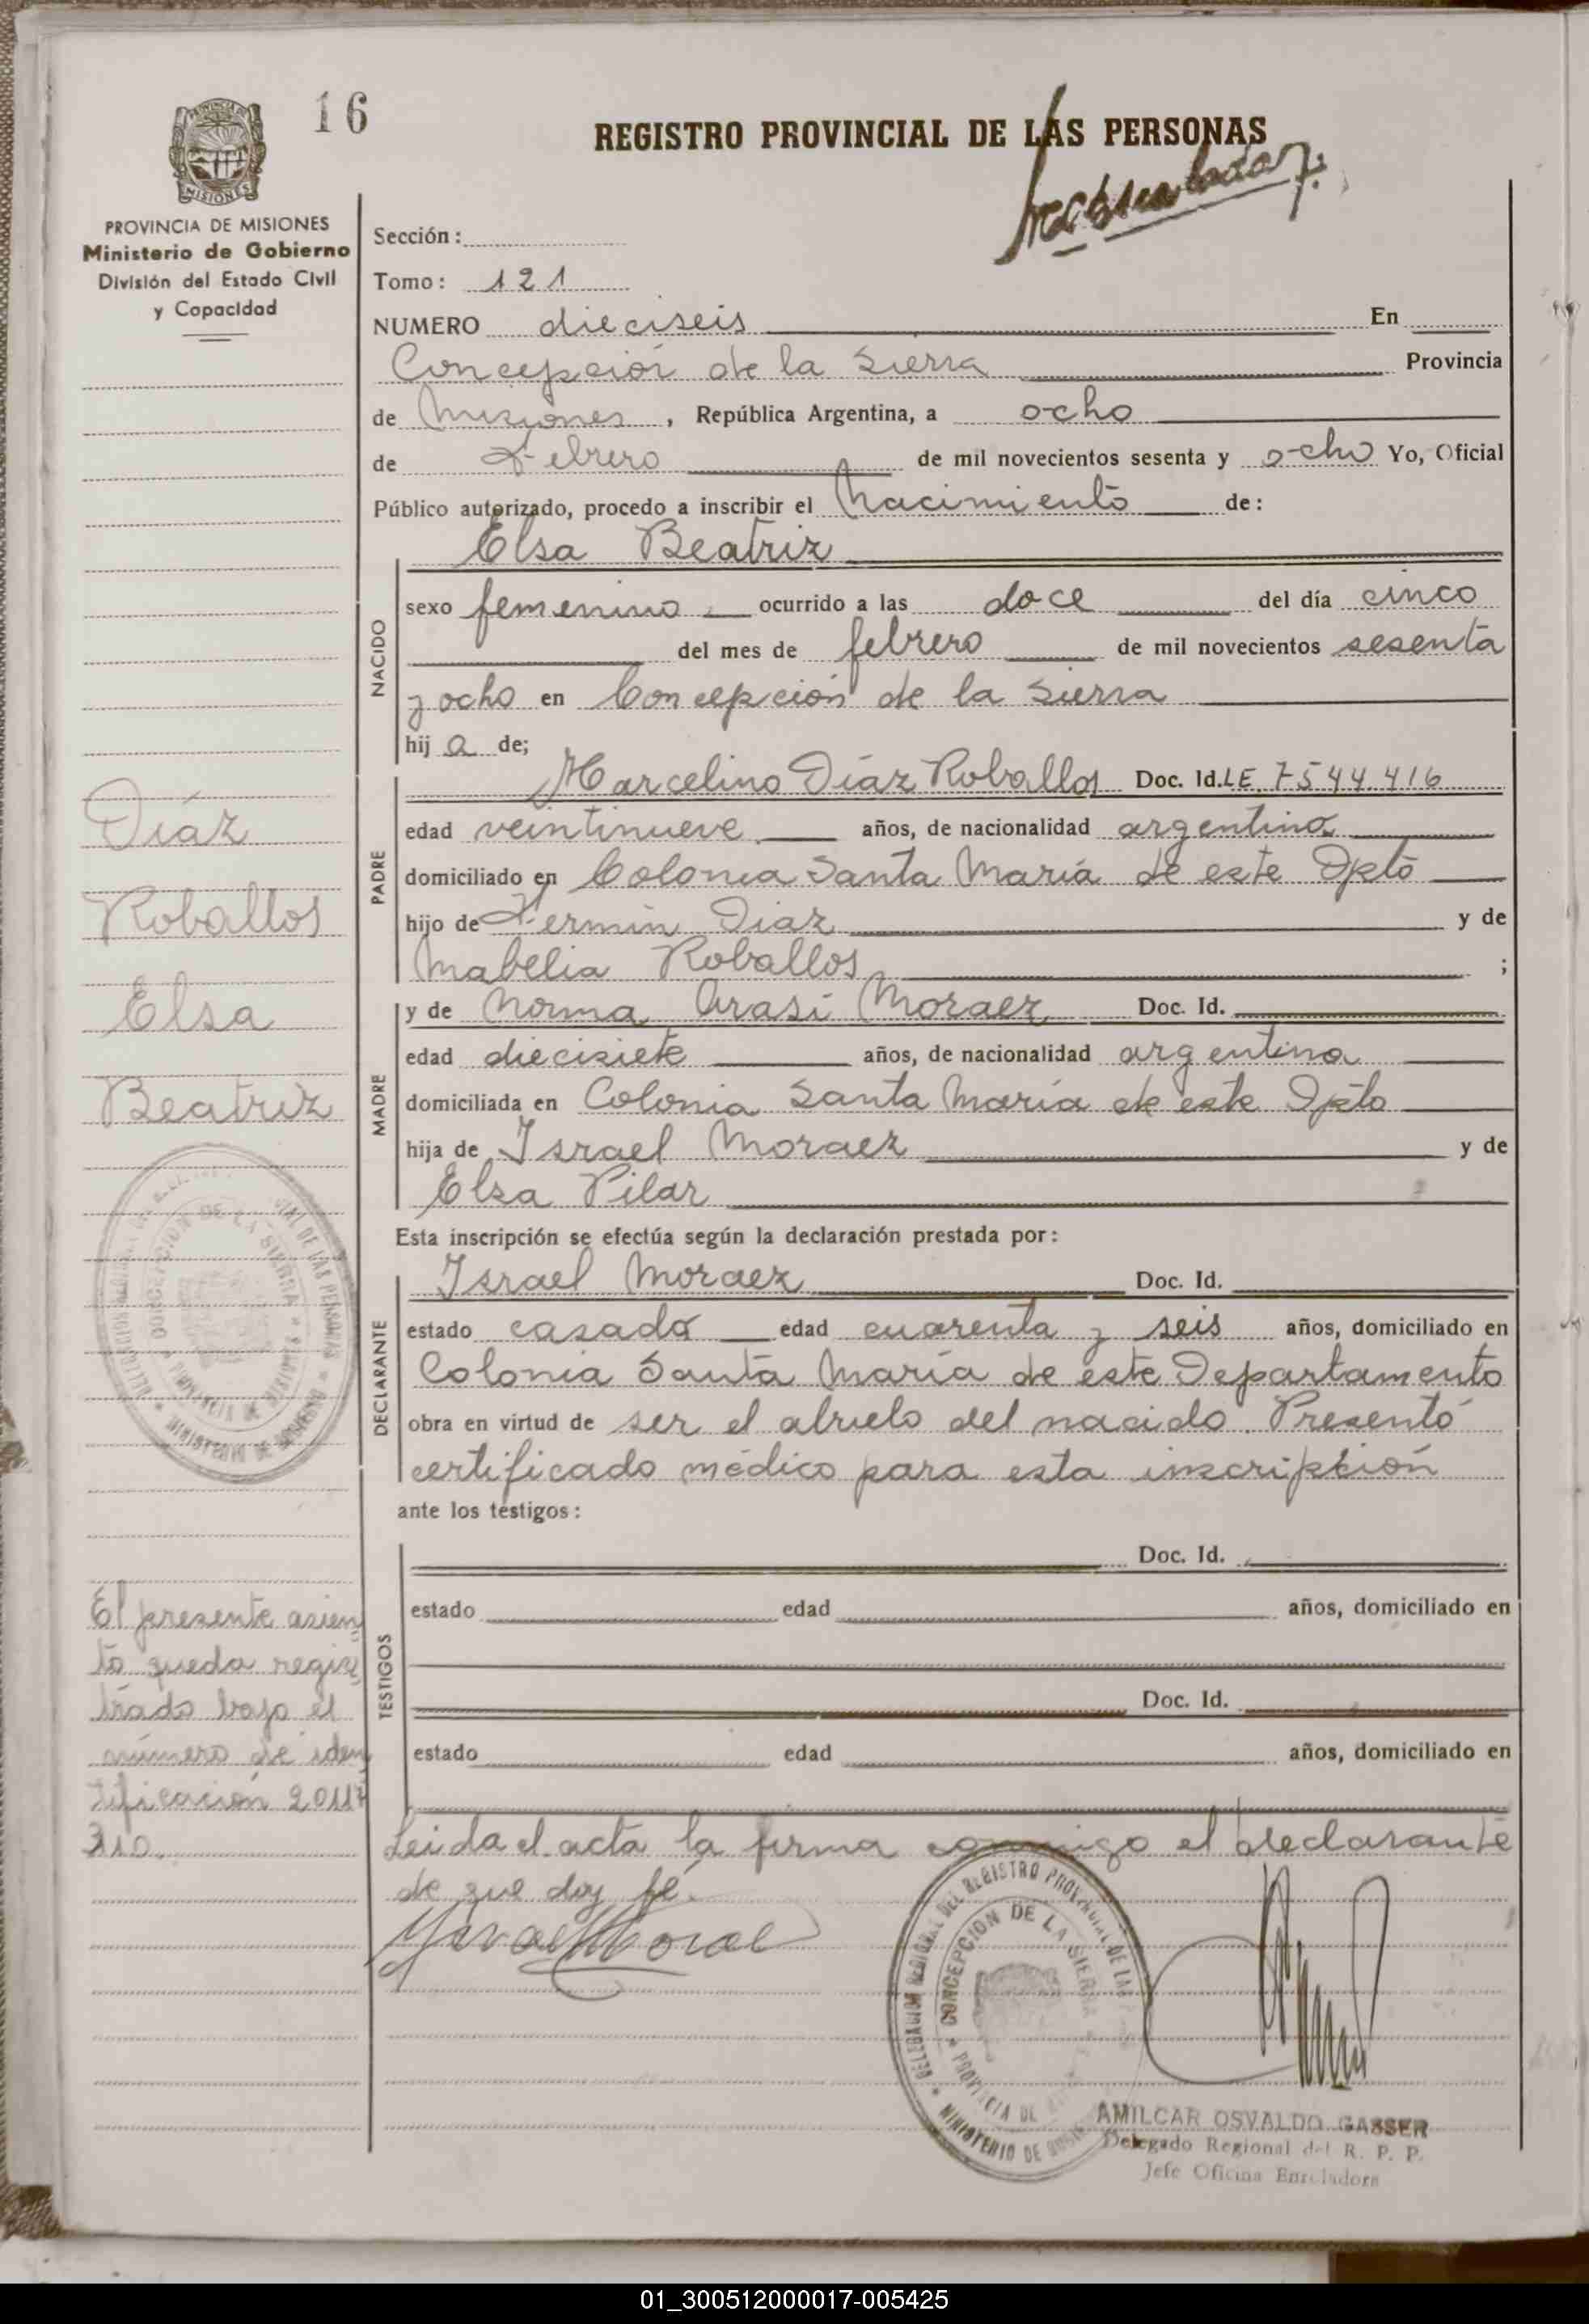 16
REGISTRO PROVINCIAL DE LAS PERSONAS
PROVINCIA DE MISIONES
Ministerio de Gobierno
División del Estado Civil
y Capacidad
Sección:
Tomo: 121
NUMERO dieciseis En
Concepción de la Sierra Provincia
de Misiones, República Argentina, a ocho
de Febrero de mil novecientos sesenta y ocho Yo, Oficial
Público autorizado, procedo a inscribir el Nacimiento de:
NACIDO
Elsa Beatriz
sexo femenino ocurrido a las doce del día cinco
del mes de febrero de mil novecientos sesenta
y ocho en Concepción de la Sierra
hij a de;
PADRE
Marcelino Díaz Roballos Doc. Id. LE. 7544.416
edad veintinueve años, de nacionalidad argentino
domiciliado en Colonia Santa María de este Dpto
hijo de Fermín Diaz y de
Mabelia Roballos ;
MADRE
y de Norma Arasi Moraez Doc. Id.
edad diecisiete años, de nacionalidad argentina
domiciliada en Colonia Santa María de este Dpto
hija de Israel Moraez y de
Elsa Pilar
Esta inscripción se efectúa según la declaración prestada por:
DECLARANTE
Israel Moraez Doc. Id.
estado casado edad cuarenta y seis años, domiciliado en
Colonia Santa María de este Departamento
obra en virtud de ser el abuelo del nacido. Presentó
certificado médico para esta inscripción
ante los testigos:
TESTIGOS
Doc. Id.
estado edad años, domiciliado en
Doc. Id.
estado edad años, domiciliado en
Leida el acta la firma conmigo el declarante
de que doy fé.
Díaz
Roballos
Elsa
Beatriz
El presente asien
to queda regis
trado bajo el
número de iden
tificación 20117
310.
DELEGACION REGIONAL DEL REGISTRO PROVINCIAL DE LAS
CONCEPCION DE LA SIERRA
PROVINCIA DE
MINISTERIO DE
AMILCAR OSVALDO GASSER
Delegado Regional del R. P. P.
Jefe Oficina Enroladora
01_300512000017-005425